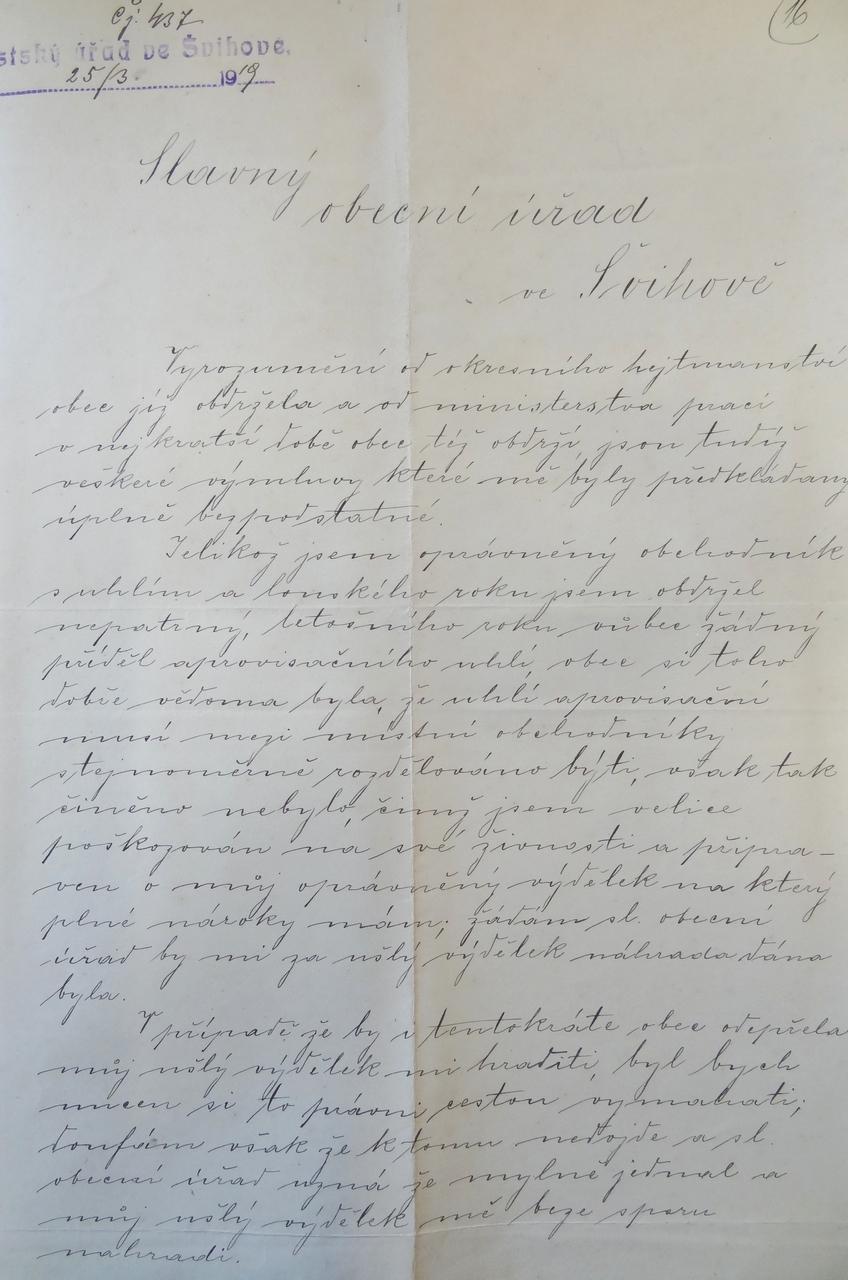 čj. 437
16
stský úřad ve Švihově.
25/3 1919
Slavný
obecní úřad
ve Švihově
Vyrozumění od okresního hejtmanství
obec již obdržela a od ministerstva prací
v nejkratší době obec též obdrží, jsou tudíž
veškeré výmluvy které mě byly předkládány
úplně bezpodstatné.
Jelikož jsem oprávněný obchodník
s uhlím a lonského roku jsem obdržel
nepatrný, letošního roku vůbec žádný
příděl aprovisačního uhlí, obec si toho
dobře vědoma byla, že uhlí aprovisační
musí mezi místní obchodníky
stejnoměrně rozdělováno býti, však tak
činěno nebylo, čímž jsem velice
poškozován na své živnosti a připra-
ven o můj oprávněný výdělek na který
plné nároky mám; žádám sl. obecní
úřad by mi za ušlý výdělek náhrada dána
byla.
V případě že by i tentokráte obec odepřela
můj ušlý výdělek mi hraditi, byl bych
nucen si to právní cestou vymahati;
doufám však že k tomu nedojde a sl.
obecní úřad uzná že mylně jednal a
můj ušlý výdělek mě beze sporu
nahradí.